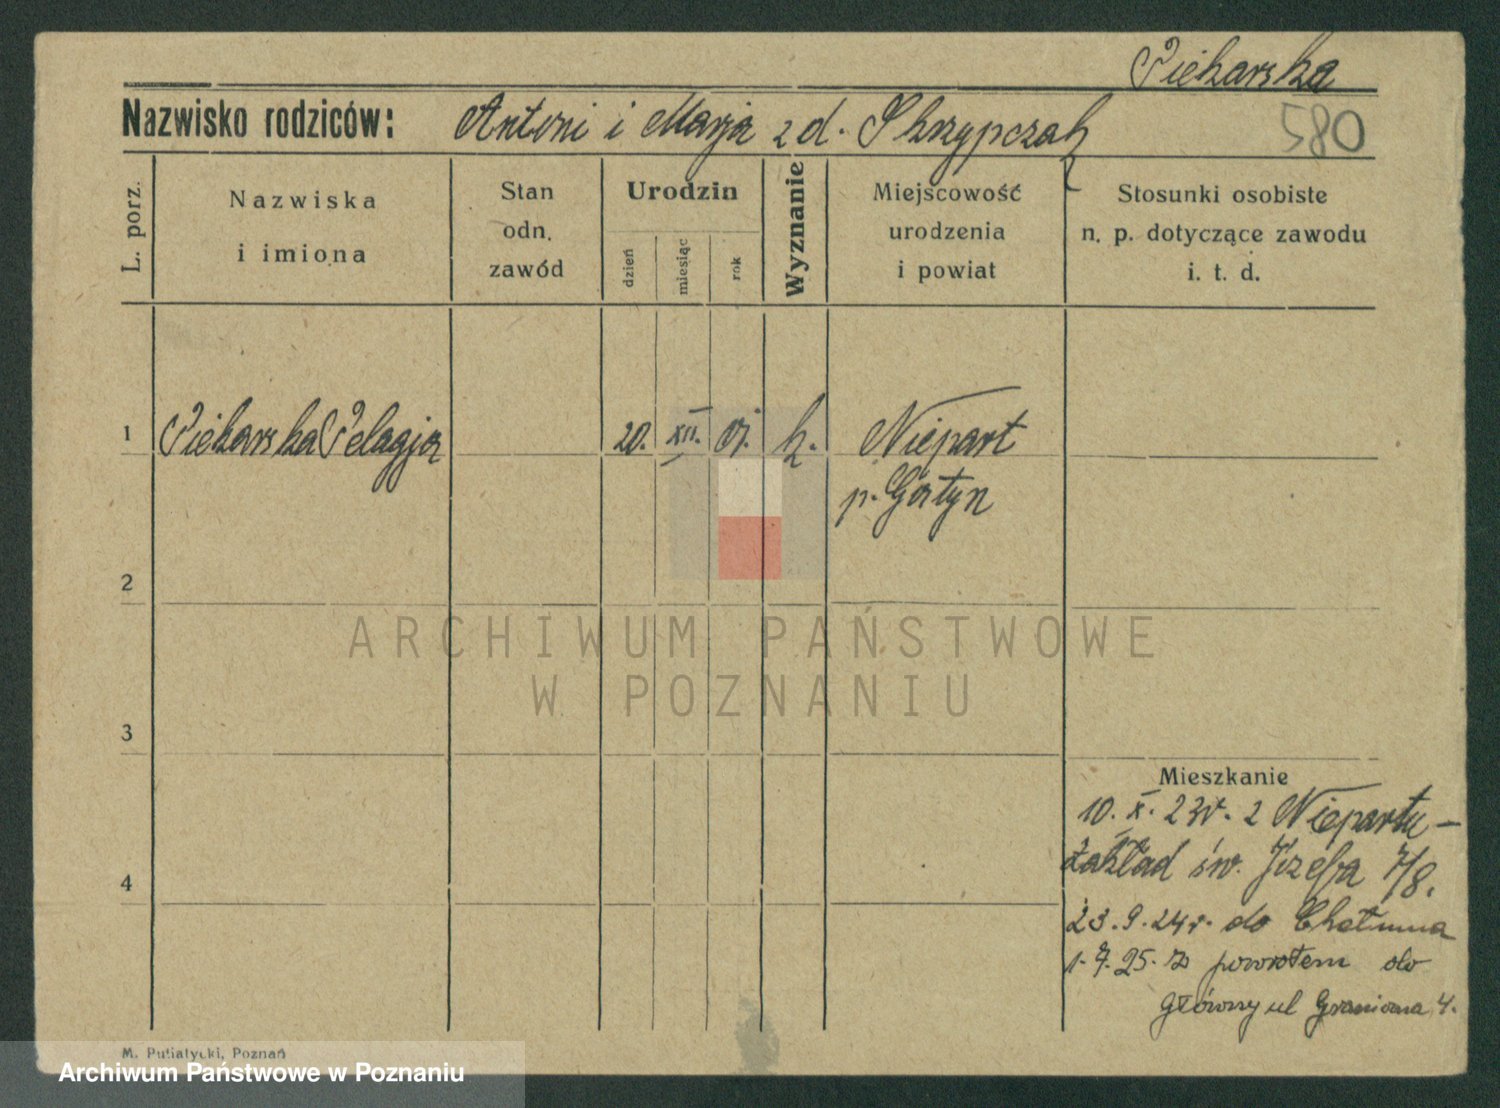 Piekarska
Nazwisko rodziców: Antoni i Marja z d. Skrzypczak
580
L. porz.
Nazwiska
i imiona
Stan
odn.
zawód
Urodzin
dzień
miesiąc
rok
Wyznanie
Miejscowość
urodzenia
i powiat
Stosunki osobiste
n. p. dotyczące zawodu
i. t. d.
1 Piekarska Pelagja 20. XII. k. Niepart
p. Gostyn
2
3
4
Mieszkanie
10. X. 23r. z Niepartu –
Zakład św. Józefa 7/8.
23. 9. 24r. do Chełmna
1. 7. 25. z powrotem do
Główny ul Graniczna 4.
M. Putiatycki, Poznań
ARCHIWUM PAŃSTWOWE
W POZNANIU
Archiwum Państwowe w Poznaniu